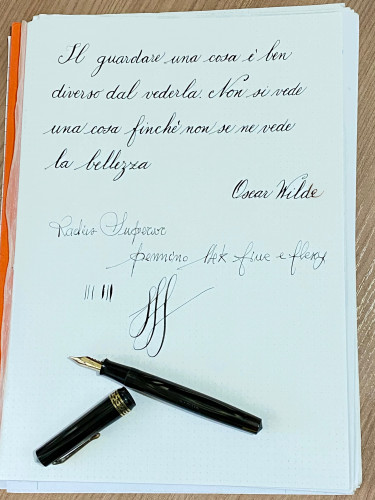 Il guardare una cosa è ben
diverso dal vederla. Non si vede
una cosa finchè non se ne vede
la bellezza
Oscar Wilde
Radius Superior
pennino 14k fine e flexy